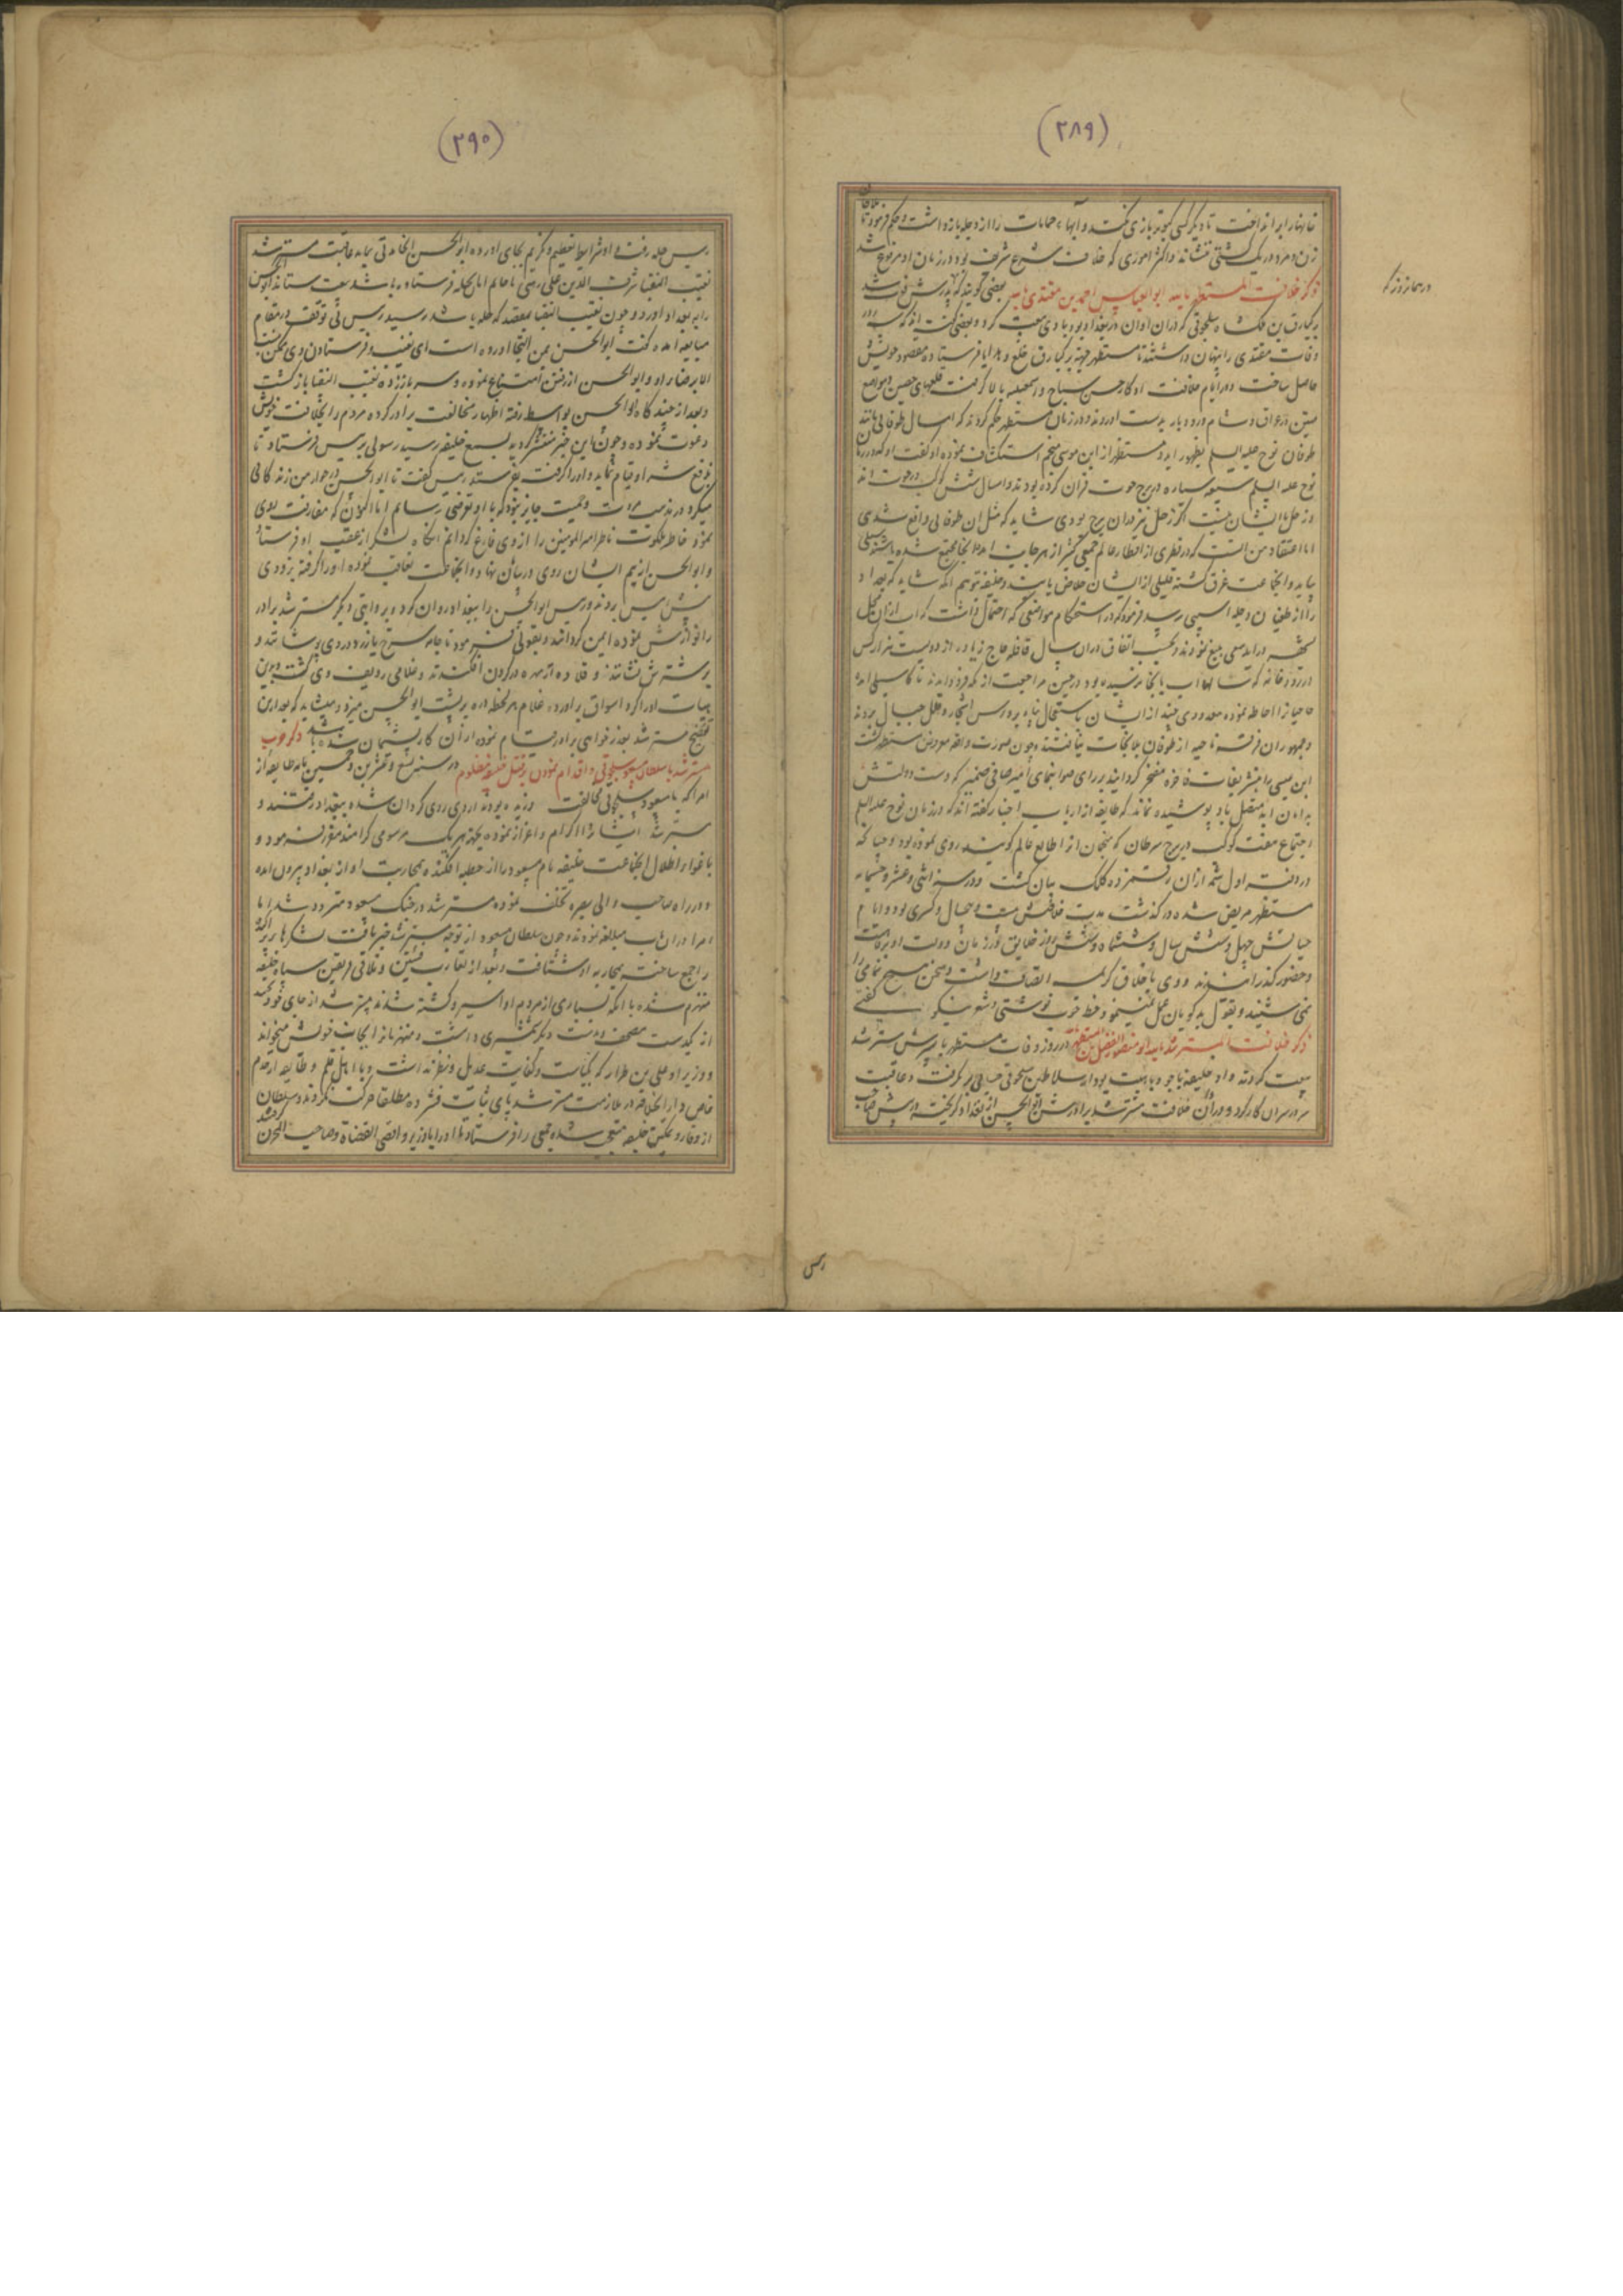 (۲۸۹)
خانها را برانداخت تا دیگر کسی کبوتر بازی نکند و آبهاء حمامات را از دجله بازداشت و حکم فرمود تا ملاحان
زن و مرد در یک کشتی ننشاند و اکثر اموری که خلاف شرع شریف بود در زمان او مرفوع شد
ذکر خلافت المستظهر بالله ابو العباس احمد بن مقتدی بامر بعضی گویند که پدرش فوت شد
در همانروز که
برکیارق بن ملکشاه سلجوقی که در ان اوان در بغداد بود با وی بیعت کرد و بعضی گفته اند که سه روز
وفات مقتدی را پنهان داشتند تا مستظهر جهة برکیارق خلع و هدایا فرستاده مقصود خویش
حاصل ساخت و در ایام خلافت او کار حسن صباح و اسمعیلیه بالا گرفت قلعهای حصین و مواضع
متین در عراق و شام و رودبار بدست اوردند و در زمان مستظهر حکم کردند که امسال طوفانی مانند
طوفان نوح علیه السلم بظهور اید و مستظهر از ابن موسی منجم استکشاف نموده او گفت که در زمان
نوح علیه السلم سبعه سیاره در برج حوت قران کرده بودند و امسال شش کوکب در حوت اند
و زحل با ایشان نیست اگر زحل نیز در ان برج بودی شاید که مثل ان طوفانی واقع شدی
اما اعتقاد من انست که در قطری از اقطار عالم جمعی کثیر از هر جانب امده بجایی مجتمع شده باشند سیلی
بیاید و انجماعت غرق گشته قلیلی از ایشان خلاص یابند و خلیفه توهم انکه شاید که بغداد
را از طغیان دجله اسیبی رسد فرمود که در استحکام مواضعی که احتمال داشت که اب از ان محل
بشهر دراید سعی بلیغ نمودند و بحسب اتفاق در ان سال قافله حاج زیاده از دویست هزار کس
در رودخانه که سالها اب بانجا نرسیده بود در حین مراجعت از مکه فرود امدند ناگاه سیلی امد
حاجیانرا احاطه نموده معدودی چند از ایشان باستعجال پناه بروس اشجار و قلل جبال بردند
و جمهور ان فرقه ناجیه از طوفان بلا نجات نیافتند و چون صورت واقعه معروض مستظهر گشت
ابن عیسی را بتشریفات فاخره مفتخر گردانید بر رای صوابنمای
اجتماع هفت کوکب در برج سرطان که منجمان انرا طالع عالم گویند روی نموده بود و چنانکه
در دفتر اول شمه از ان رقمزده کلک بیان گشت و در سنه اثنی و عشر و خمسمایه
مستظهر مریض شده درگذشت مدت خلافتش بیست و پنجسال و کسری بود و ایام
حیاتش چهل و شش سال و ششماه و شش روز خلایق در زمان دولت او برفاهیت
و حضور گذرانیدند و وی باخلاق کریمه اتصاف داشت و سخن هیچ نمامی را
نمی شنید و بقول بدگویان عمل نمینمود و خط خوب نوشتی و شعر نیکو گفتی
ذکر خلافت المسترشد بالله ابو منصور الفضل بن المستظهر در روز وفات مستظهر با پسرش مسترشد
بیعت کردند و او خلیفه با جود و هیبت بود از سلاطین سلجوقی حسابی برنگرفت و عاقبت
سر در سر ان کار کرد و در اوان خلافت مسترشد برادرش ابو الحسن از بغداد گریخته و پیش صاحب
رییس
(۲۹۰)
رییس حله رفت و او شرایط تعظیم و تکریم بجای اورده ابو الحسن انجا مدتی بماند عاقبت مسترشد
نقیب النقبا شرف الدین علی زینبی را بحله فرستاد
را ببغداد اورد و چون نقیب النقبا بمقصد که حله باشد رسید رییس بی توقف در مقام
مبایعه امده گفت ابو الحسن بمن التجا اورده است ای نقیب و فرستادن وی ممکن نیست
الا برضاء او و ابو الحسن از رفتن امتناع نموده و سر باز زده نقیب النقبا بازگشت
و بعد از چند گاه ابو الحسن بواسط رفته اظهار مخالفت برادر کرده مردم را بخلافت خویش
دعوت نموده و چون این خبر منتشر گردید بسمع خلیفه رسید رسولی بر رییس فرستاد تا
بدفع شر او قیام نماید و او را گرفته بفرستد رییس گفت تا ابو الحسن در جوار من زندگانی
میکرد در مذهب مروت و حمیت جایز نبود که با او تعرضی رسانم اما اکنون که مفارقت بدی
نمود خاطر ملکوت ناظر امیر المومنین را از وی فارغ گردانم انگاه لشکر از عقب او فرستاد
و ابو الحسن از بیم ایشان روی در بیابان نهاد و انجماعت تعاقب نموده او را گرفته بزودی
پیش رییس بردند و رییس ابو الحسن را ببغداد روان کرد و بروایتی دیگر مسترشد برادر
را نوازش نموده ایمن گردانید و بقولی فرمود تا جامه سرخ یا زرد در وی پوشانند و
بر شترش نشاندند و قلاده از مهره در گردن افکندند و غلامی ردیف وی گشته و بدین
هیات او را گرد اسواق براورد و غلام هر لحظه دره بر پشت ابو الحسن میزد و میشاید که بعد ازین
تفضیح مسترشد بعذر خواهی برادر قیام نموده از ان کار پشیمان شده باشد ذکر حرب
مسترشد با سلطان مسعود سلجوقی و اقدام نمودن بر قتل خلیفه مظلوم در سنه تسع و عشرین و خمسمایه طایفه از
امرا که با مسعود سلجوقی مخالفت ورزیده بودند از وی روی گردان شده ببغداد رفتند و
مسترشد ایشانرا اکرام و اعزاز نموده بجهة هر یک مرسومی گرامند مقرر فرمود و
باغوا و اضلال انجماعت خلیفه نام مسعود را از خطبه افکنده بمحاربت او از بغداد بیرون امده
و در راه صاحب و الی بصره تخلف نموده مسترشد در جنگ مسعود متردد شد اما
امرا در ان باب مبالغه نمودند و چون سلطان مسعود از توجه مسترشد خبر یافت لشکرها پراکنده
را جمع ساخته بمحاربه او شتافت و بعد از تقارب فئتین و تلاقی فریقین سپاه خلیفه
منهزم شده با انکه بسیاری از مردم او اسیر و کشته شدند مسترشد از جای خود نجنبید
از یکدست مصحف و بدست دیگر شمشیری داشت و منهزمانرا بجانب خویش میخواند
و وزیر او علی بن طراد که بکیاست و کفایت عدیل و نظیر نداشت و با اهل قلم و طایفه از مردم
خاص دار الخلافه در ملازمت مسترشد پای ثبات فشرده مطلقا حرکت نکردند و سلطان
از وقار و تمکین خلیفه متعجب شده جمعی را فرستاد تا او را با وزیر و اقضی القضاة و صاحب المخزن گرفتند